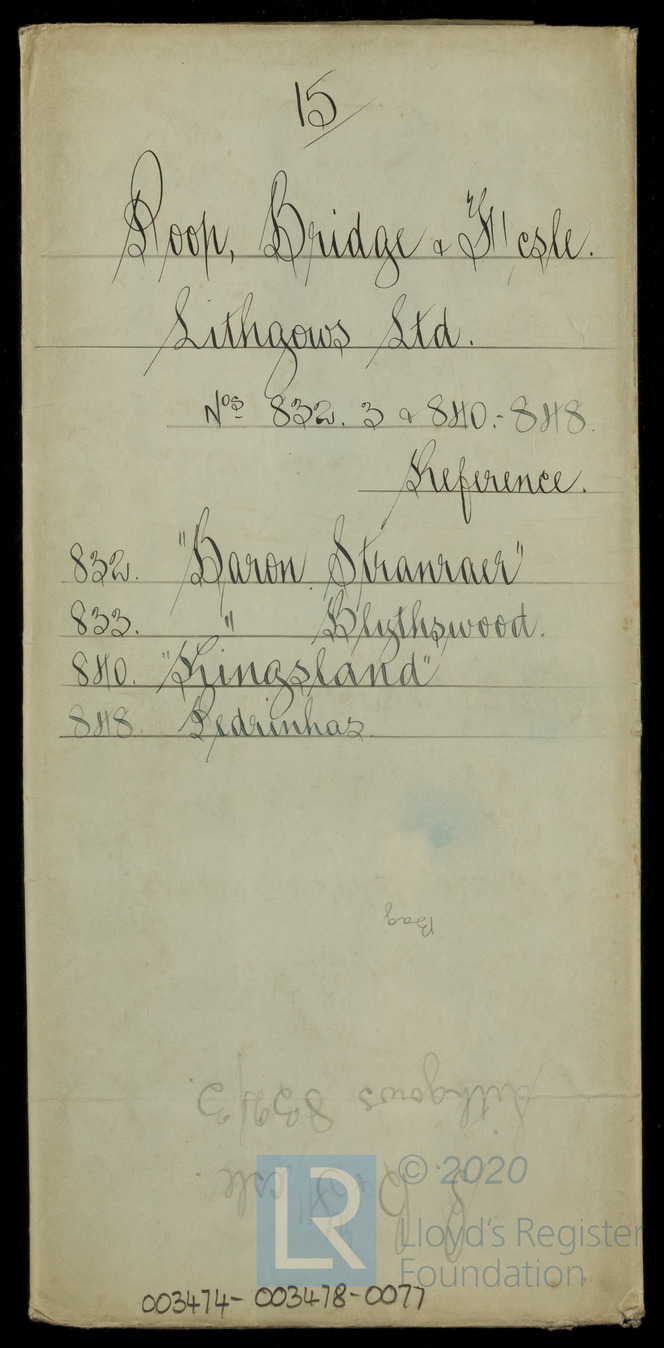 15
Poop, Bridge & F'csle.
Lithgows Ltd.
Nos 832. 3 & 840.-848.
Reference.
832. "Baron Stranraer"
833. " Blythswood.
840. "Kingsland"
848. Pedrinhas.
Bag
Lithgows 832/3.
P. B & F'csle.
LR
© 2020
Lloyd's Register
Foundation
003474-003478-0077